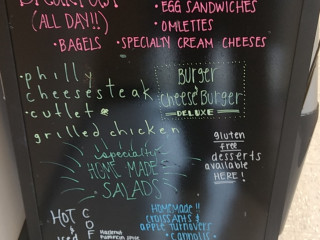 (ALL DAY!!)
· EGG SANDWICHES
· OMLETTES
· BAGELS · SPECIALTY CREAM CHEESES
· philly
cheesesteak
· cutlet
grilled chicken
Burger
Cheese Burger
DELUXE
gluten
free
desserts
available
HERE!
specialty
HOME MADE
SALADS
HOT
HOMEMADE!!
croissants &
apple turnovers
· cannolis ·